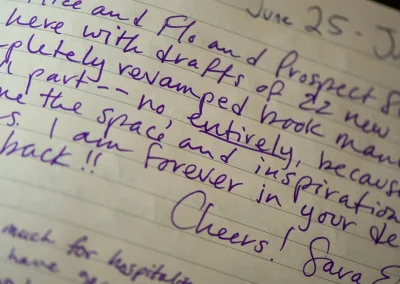 June 25 - Ju
ice and Flo and Prospect S
here with drafts of 22 new
pletely revamped book man
part -- no, entirely, because
me the space and inspiration
I am forever in your de
back!!
Cheers! Sara
much for hospitali
have